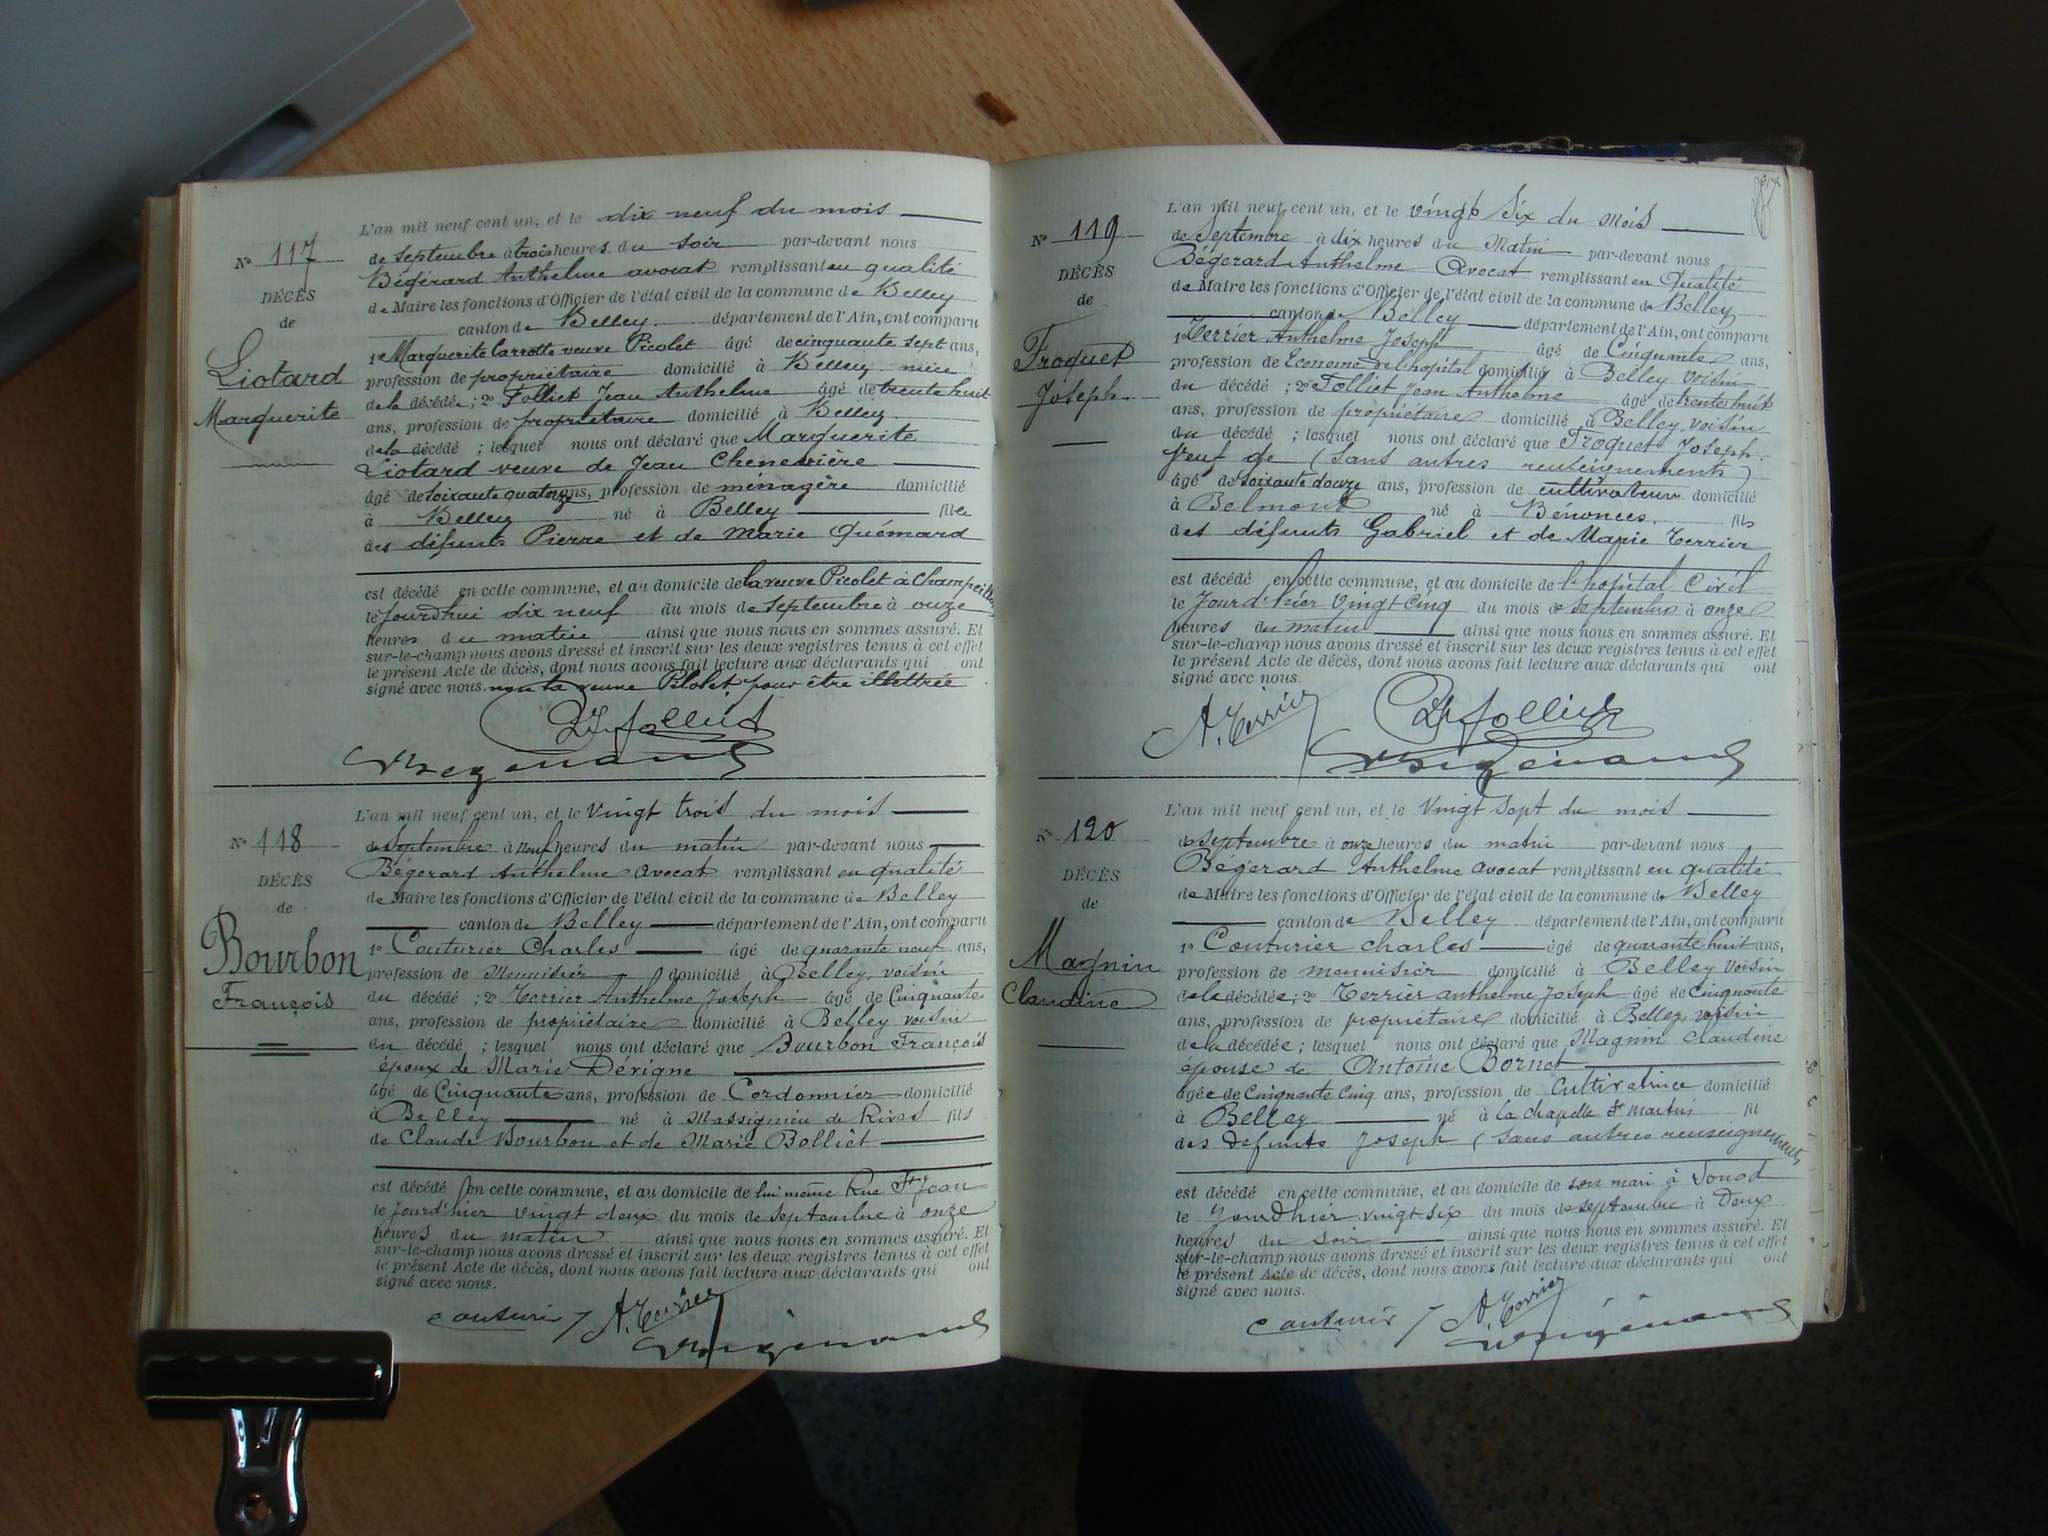 L'an mil neuf cent un, et le dix neuf du mois
de septembre à trois heures du soir par-devant nous
Bégérard Anthelme avocat remplissant en qualité
de Maire les fonctions d'Officier de l'état civil de la commune de Belley
canton de Belley département de l'Ain, ont comparu
1o Marguerite Carrotte veuve Picolet âgé de cinquante sept ans,
profession de propriétaire domicilié à Belley nièce
de la décédé ; 2o Folliet Jean Anthelme âgé de trente huit
ans, profession de propriétaire domicilié à Belley
de la décédé ; lesquel nous ont déclaré que Marguerite
Liotard veuve de Jean
âgé de soixante quatorze ans, profession de ménagère domicilié
à Belley né à Belley fille
des défunts Pierre et de Marie Quémard
est décédé en cette commune, et au domicile de la veuve Picolet à
le jourd'hui dix neuf du mois de septembre à onze
heures du matin ainsi que nous nous en sommes assuré. Et
sur-le-champ nous avons dressé et inscrit sur les deux registres tenus à cet effet
le présent Acte de décès, dont nous avons fait lecture aux déclarants qui ont
signé avec nous non la veuve Picolet pour être illettrée
No 117
DÉCÈS
de
Liotard
Marguerite
L'an mil neuf cent un, et le vingt trois du mois
de septembre à neuf heures du matin par-devant nous
Bégerard Anthelme avocat remplissant en qualité
de Maire les fonctions d'Officier de l'état civil de la commune de Belley
canton de Belley département de l'Ain, ont comparu
1o Couturier Charles âgé de quarante neuf ans,
profession de Menuisier domicilié à Belley, voisin
du décédé ; 2o Terrier Anthelme Joseph âgé de Cinquante
ans, profession de propriétaire domicilié à Belley voisin
du décédé ; lesquel nous ont déclaré que Bourbon François
époux de Marie Dérigne
âgé de Cinquante ans, profession de Cordonnier domicilié
à Belley né à Massignieu de Rives fils
de Claude Bourbon et de Marie Bolliet
est décédé en cette commune, et au domicile de lui même Rue St Jean
le jourd'hier vingt deux du mois de septembre à onze
heures du matin ainsi que nous nous en sommes assuré. Et
sur-le-champ nous avons dressé et inscrit sur les deux registres tenus à cet effet
le présent Acte de décès, dont nous avons fait lecture aux déclarants qui ont
signé avec nous.
couturier A. Terrier
No 118
DÉCÈS
de
Bourbon
François
L'an mil neuf cent un, et le vingt six du mois
de Septembre à dix heures du Matin par-devant nous
Bégerard Anthelme Avocat remplissant en Qualité
de Maire les fonctions d'Officier de l'état civil de la commune de Belley
canton de Belley département de l'Ain, ont comparu
1o Terrier Anthelme Joseph âgé de Cinquante ans,
profession de Econome de l'hopital domicilié à Belley voisin
du décédé ; 2o Folliet Jean Anthelme âgé de trente huit
ans, profession de propriétaire domicilié à Belley, voisin
du décédé ; lesquel nous ont déclaré que Froquet Joseph
Veuf de (sans autres renseignements)
âgé de soixante douze ans, profession de cultivateur domicilié
à Belmont né à Bénonces fils
des défunts Gabriel et de Marie Terrier
est décédé en cette commune, et au domicile de l'hopital Civil
le Jourd'hier vingt cinq du mois de septembre à onze
heures du matin ainsi que nous nous en sommes assuré. Et
sur-le-champ nous avons dressé et inscrit sur les deux registres tenus à cet effet
le présent Acte de décès, dont nous avons fait lecture aux déclarants qui ont
signé avec nous.
A. Terrier
No 119
DÉCÈS
de
Froquet
Joseph
L'an mil neuf cent un, et le vingt sept du mois
de septembre à onze heures du matin par-devant nous
Bégerard Anthelme avocat remplissant en qualité
de Maire les fonctions d'Officier de l'état civil de la commune de Belley
canton de Belley département de l'Ain, ont comparu
1o Couturier charles âgé de quarante huit ans,
profession de menuisier domicilié à Belley voisin
de la décédée ; 2o Terrier anthelme Joseph âgé de Cinquante
ans, profession de propriétaire domicilié à Belley, voisin
de la décédée ; lesquel nous ont déclaré que Magnin Claudine
épouse de Antoine Bornet
âgée de Cinquante Cinq ans, profession de Cultivatrice domicilié
à Belley né à la chapelle St martin fil
des defunts Joseph (sans autres renseignements
est décédé en cette commune, et au domicile de son mari à Sonod
le Jourdhier vingt six du mois de septembre à Deux
heures du soir ainsi que nous nous en sommes assuré. Et
sur-le-champ nous avons dressé et inscrit sur les deux registres tenus à cet effet
le présent Acte de décès, dont nous avons fait lecture aux déclarants qui ont
signé avec nous.
couturier A. Terrier
No 120
DÉCÈS
de
Magnin
Claudine